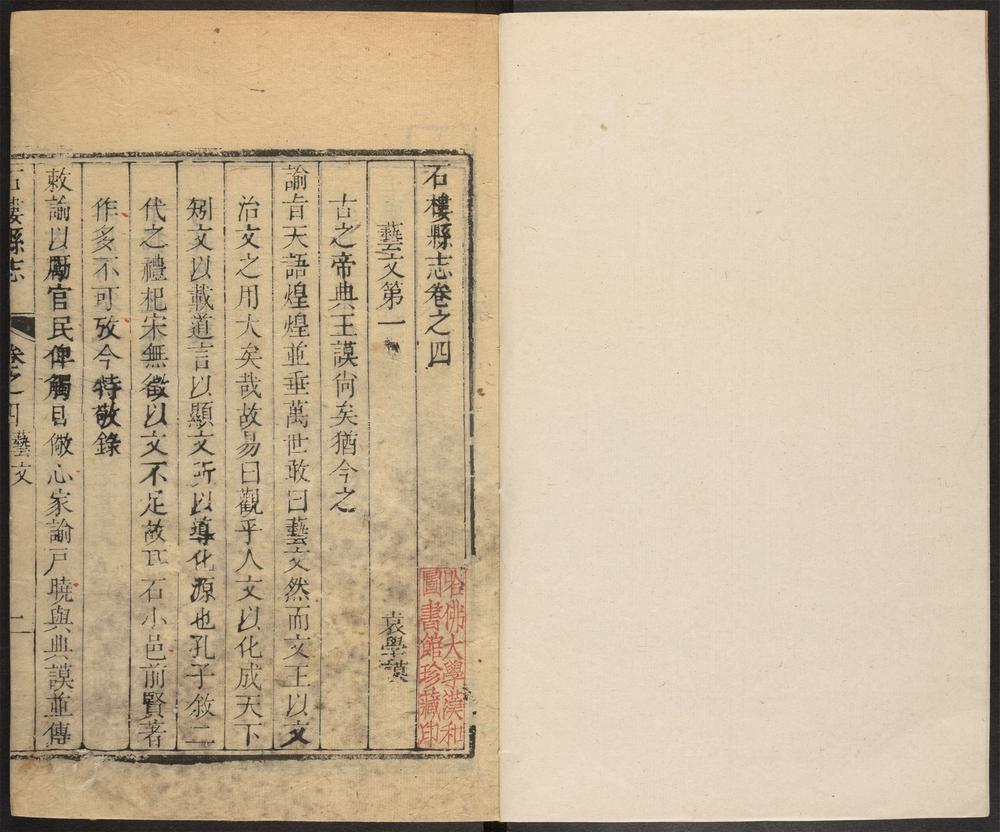 石樓縣志卷之四
藝文第一
袁學謨
古之帝典王謨尙矣猶今之
諭旨天語煌煌並垂萬世敢曰藝文然而文王以文
治文之用大矣哉故易曰觀乎人文以化成天下
矧文以載道言以顯文所以導化源也孔子敘二
代之禮杞宋無徵以文不足故耳石小邑前賢著
作多不可攷今特敬錄
敕諭以勵官民俾觸目儆心家諭戸曉與典謨並傳
石樓縣志
卷之四
藝文
一
哈佛大學漢和
圖書館珍藏印